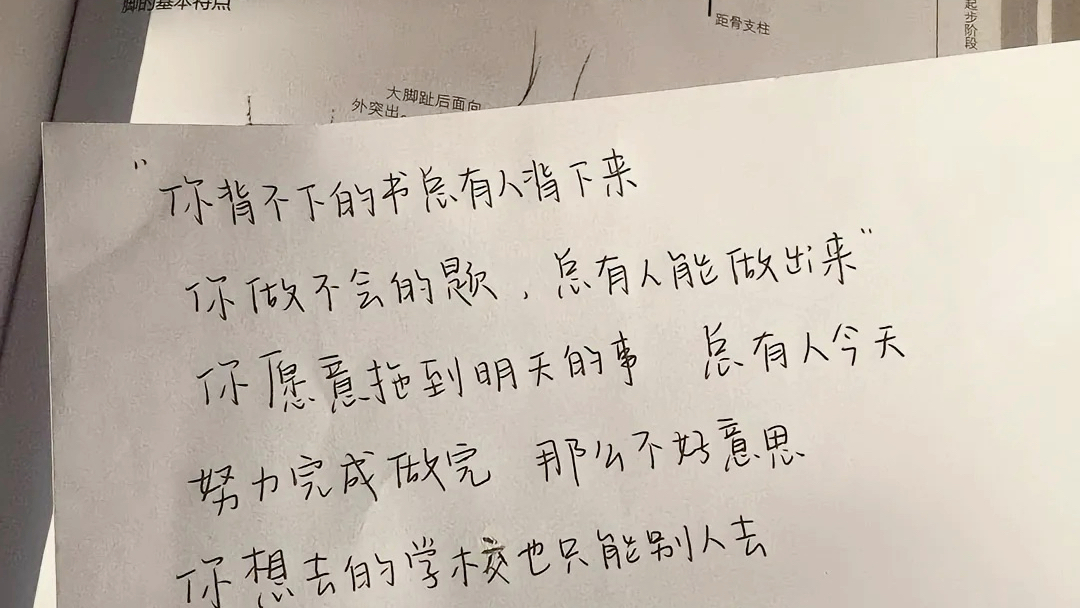 脚的基本特点
距骨支柱
起步阶段
大脚趾后面向
外突出。
"你背不下的书总有人背下来
你做不会的题，总有人能做出来"
你愿意拖到明天的事 总有人今天
努力完成做完 那么不好意思
你想去的学校也只能别人去